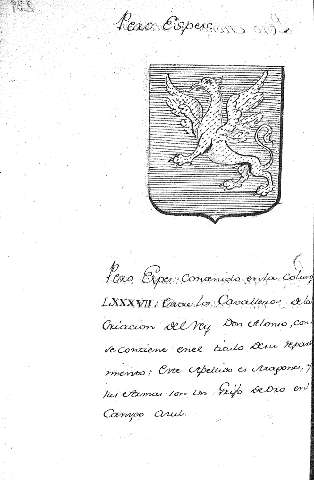 Pexo Espex
Pexo Espex: Contenido en la Colum
LXXXVII: Entre los Cavalleros de la
Criacion del Rey Don Alonso, con
se contiene en el titulo de su repart
miento: Este Apellido es Aragones, y
sus Armas son un Grifo de Oro en
Campo Azul.